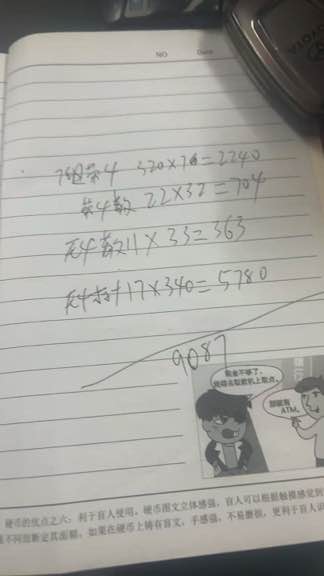 NO Date
320×7=2240
22×32=704
数11×33=363
17×340=5780
9087
现金不够了,
我得去取款机上取点。
那就有
ATM。
硬币的优点之六:利于盲人使用。硬币图文立体感强,盲人可以根据触摸感觉到
不同而断定其面额。如果在硬币上铸有盲文,手感强,不易磨损,更利于盲人识